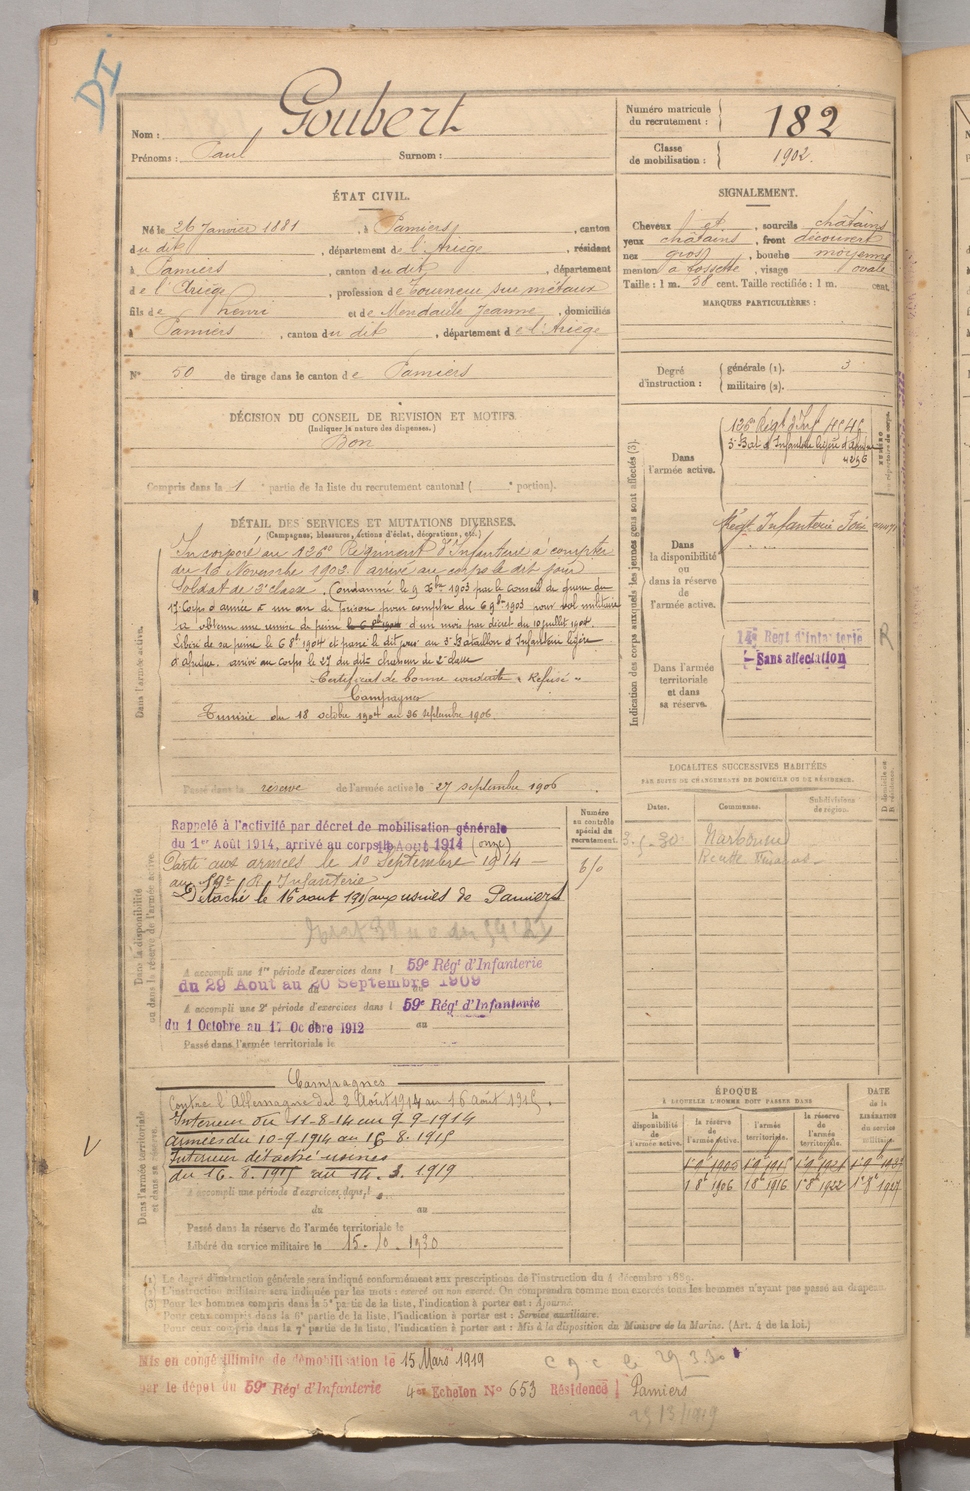 DI
Nom : Goubert
Prénoms : Paul Surnom :
Numéro matricule du recrutement : 182
Classe de mobilisation : 1902.
ÉTAT CIVIL.
Né le 26 Janvier 1881, à Pamiers, canton
du dit, département de l'Ariège, résidant
à Pamiers, canton du dit, département
de l'Ariège, profession de Tourneur sur métaux
fils de Henri et de Mondaule Jeanne, domiciliés
à Pamiers, canton du dit, département de l'Ariège
N° 50 de tirage dans le canton de Pamiers
SIGNALEMENT.
Cheveux et, sourcils châtains
yeux châtains, front découvert
nez gros, bouche moyenne
menton à fossette, visage ovale
Taille : 1 m. 58 cent. Taille rectifiée : 1 m. cent.
MARQUES PARTICULIÈRES :
Degré d'instruction : générale (1). 3
militaire (2).
DÉCISION DU CONSEIL DE REVISION ET MOTIFS.
(Indiquer la nature des dispenses.)
Bon
Compris dans la 1e partie de la liste du recrutement cantonal ( e portion).
DÉTAIL DES SERVICES ET MUTATIONS DIVERSES.
(Campagnes, blessures, actions d'éclat, décorations, etc.)
Dans l'armée active.
Incorporé au 126e Régiment d'Infanterie à compter
du 16 Novembre 1902. arrivé au corps le dit jour
Soldat de 2e classe. Condamné le 9 Xbre 1903 par le conseil de guerre du
17e Corps d'armée à un an de prison pour compter du 6 9bre 1903 pour vol militaire
a obtenu une remise de peine d'un mois par décret du 10 juillet 1904.
Libéré de sa peine le 6 8bre 1904 et passé le dit jour au 5e Bataillon d'Infanterie légère
d'afrique. arrivé au Corps le 27 du dit chasseur de 2e classe
Certificat de bonne conduite « Refusé »
Campagnes
Tunisie du 18 octobre 1904 au 26 septembre 1906.
Passé dans la reserve de l'armée active le 27 septembre 1906
Indication des corps auxquels les jeunes gens sont affectés (3).
Dans l'armée active.
126e Régt d'Inf
5e Bat d'Infanterie légère d'Afrique
Dans la disponibilité ou dans la réserve de l'armée active.
Régt Infanterie Foix
Dans l'armée territoriale et dans sa réserve.
Régt d'Infanterie
Sans affectation
R
Dans la disponibilité ou dans la réserve de l'armée active.
Rappelé à l'activité par décret de mobilisation générale
du 1er Août 1914, arrivé au corps le 11 Août 1914 (onze)
Parti aux armées le 10 Septembre 1914
au 59e R. Infanterie
Détaché le 16 aout 1915 aux usines de Pamiers
Numéro au contrôle spécial du recrutement.
A accompli une 1re période d'exercices dans l 59e Régt d'Infanterie
du 29 Août au 20 Septembre 1909
A accompli une 2e période d'exercices dans l 59e Régt d'Infanterie
du 1 Octobre au 17 Octobre 1912
Passé dans l'armée territoriale le
LOCALITES SUCCESSIVES HABITÉES
PAR SUITE DE CHANGEMENTS DE DOMICILE OU DE RÉSIDENCE.
Dates. Communes. Subdivisions de région.
3-5-30 Narbonne
Dans l'armée territoriale et dans sa réserve.
Campagnes
Contre l'Allemagne du 2 Août 1914 au 16 Août 1915.
Intérieur du 11-8-14 au 9-9-1914
Armées du 10-9-1914 au 16.8.1915
Intérieur détaché usines
du 16.8.1915 au 14.3.1919
A accompli une période d'exercices dans l
du au
Passé dans la réserve de l'armée territoriale le
Libéré du service militaire le 15-10-1930
ÉPOQUE
À LAQUELLE L'HOMME DOIT PASSER DANS
la disponibilité de l'armée active. la réserve de l'armée active. l'armée territoriale. la réserve de l'armée territoriale. DATE de la LIBÉRATION du service militaire.
1 8e 1906 1 8e 1916 1 8e 1922 1 8e 1927
(1) Le degré d'instruction générale sera indiqué conformément aux prescriptions de l'instruction du 4 décembre 1889.
(2) L'instruction militaire sera indiquée par les mots : exercé ou non exercé. On comprendra comme non exercés tous les hommes n'ayant pas passé au drapeau.
(3) Pour les hommes compris dans la 5e partie de la liste, l'indication à porter est : Ajourné.
Pour ceux compris dans la 6e partie de la liste, l'indication à porter est : Service auxiliaire.
Pour ceux compris dans la 7e partie de la liste, l'indication à porter est : Mis à la disposition du Ministre de la Marine. (Art. 4 de la loi.)
Mis en congé illimité de démobilisation le 15 Mars 1919
par le dépôt du 59e Régt d'Infanterie 4e Echelon N° 653 Résidence Pamiers
25/3/1919